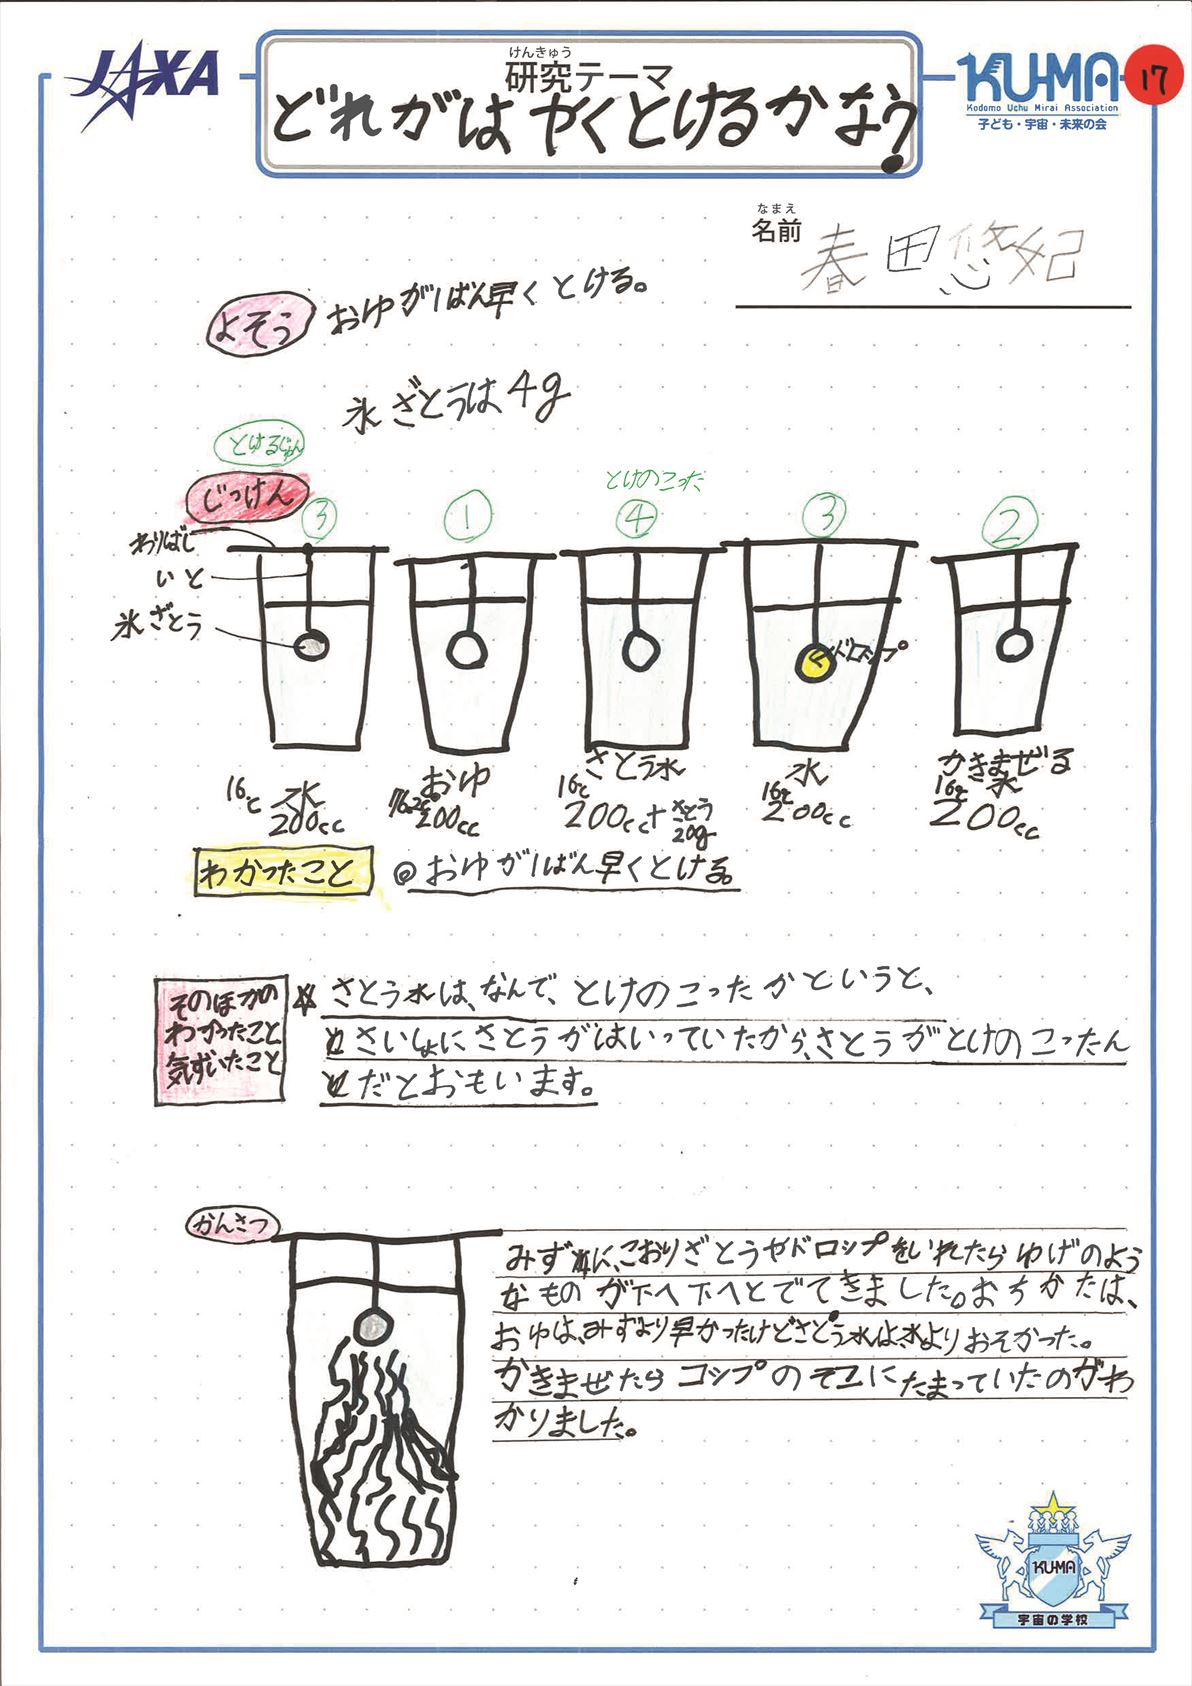 JAXA
けんきゅう
研究テーマ
どれがはやくとけるかな?
KU-MA
Kodomo Uchu Mirai Association
子ども・宇宙・未来の会
17
なまえ
名前
春田悠妃
よそう
おゆが1ばん早くとける。
氷ざとうは4g
とけるじゅん
じっけん
③
①
とけのこった
④
③
②
わりばし
いと
氷ざとう
ドロップ
16℃ 水
200cc
おゆ
76.2℃
200cc
さとう水
16℃
200cc+さとう
20g
水
16℃
200cc
かきまぜる
16℃ 水
200cc
わかったこと
◎おゆが1ばん早くとける。
そのほかの
わかったこと
気ずいたこと
☆さとう水は、なんで、とけのこったかというと、
さいしょにさとうがはいっていたから、さとうがとけのこったん
だとおもいます。
かんさつ
みずに、こおりざとうやドロップをいれたらゆげのよう
なものが下へ下へとでてきました。おちかたは、
おゆは、みずより早かったけどさとう水は、水よりおそかった。
かきまぜたらコップのそこにたまっていたのがわ
かりました。
KU-MA
宇宙の学校